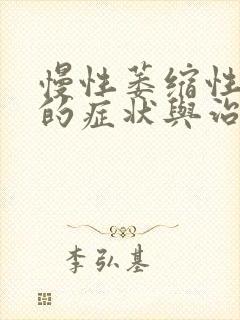 慢性萎缩性
的症状與治
李弘基